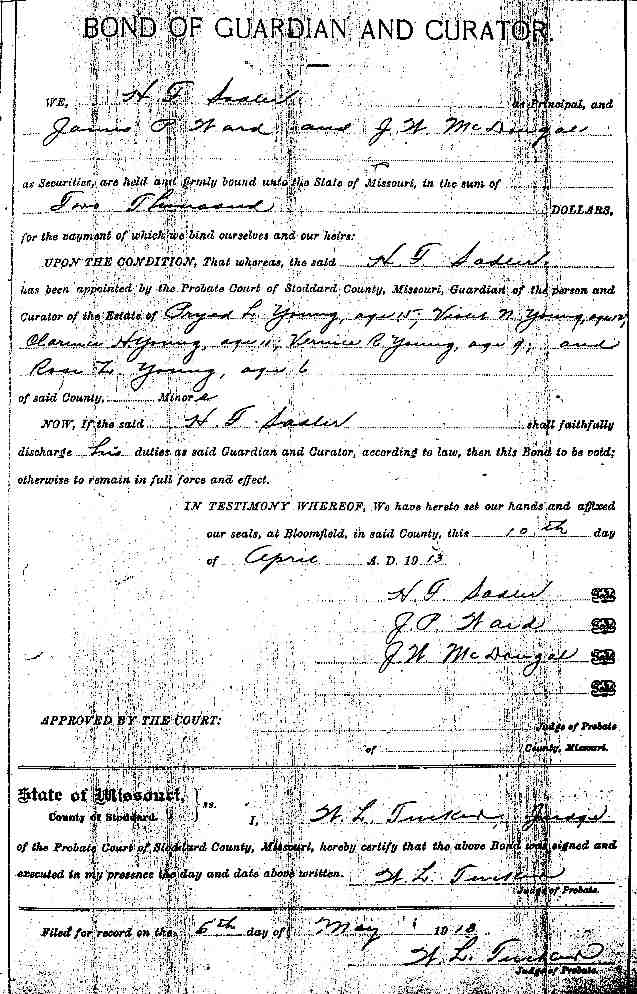 BOND OF GUARDIAN AND CURATOR.
WE, H T Sadler as Principal, and
James P Ward and J. W. McDougal
as Securities, are held and firmly bound unto the State of Missouri, in the sum of
Two Thousand DOLLARS,
for the payment of which we bind ourselves and our heirs:
UPON THE CONDITION, That whereas, the said H. T. Sadler
has been appointed by the Probate Court of Stoddard County, Missouri, Guardian of the person and
Curator of the Estate of L. Young, age 15, Violet N. Young, age
Clarence H Young, age 11, Vernice R. Young, age 9, and
Rosa L. Young, age 6
of said County, Minors
NOW, If the said H T Sadler shall faithfully
discharge his duties as said Guardian and Curator, according to law, then this Bond to be void;
otherwise to remain in full force and effect.
IN TESTIMONY WHEREOF, We have hereto set our hands and affixed
our seals, at Bloomfield, in said County, this 10th day
of April A. D. 1913
H T Sadler
J. P. Ward
J W McDougal
APPROVED BY THE COURT:
Judge of Probate
of County, Missouri.
State of Missouri, } ss.
County of Stoddard.
I, W. L. Tucker, Judge
of the Probate Court of Stoddard County, Missouri, hereby certify that the above Bond was signed and
executed in my presence the day and date above written. W L. Tucker
Judge of Probate.
Filed for record on the 5th day of May 1913
W L. Tucker
Judge of Probate.